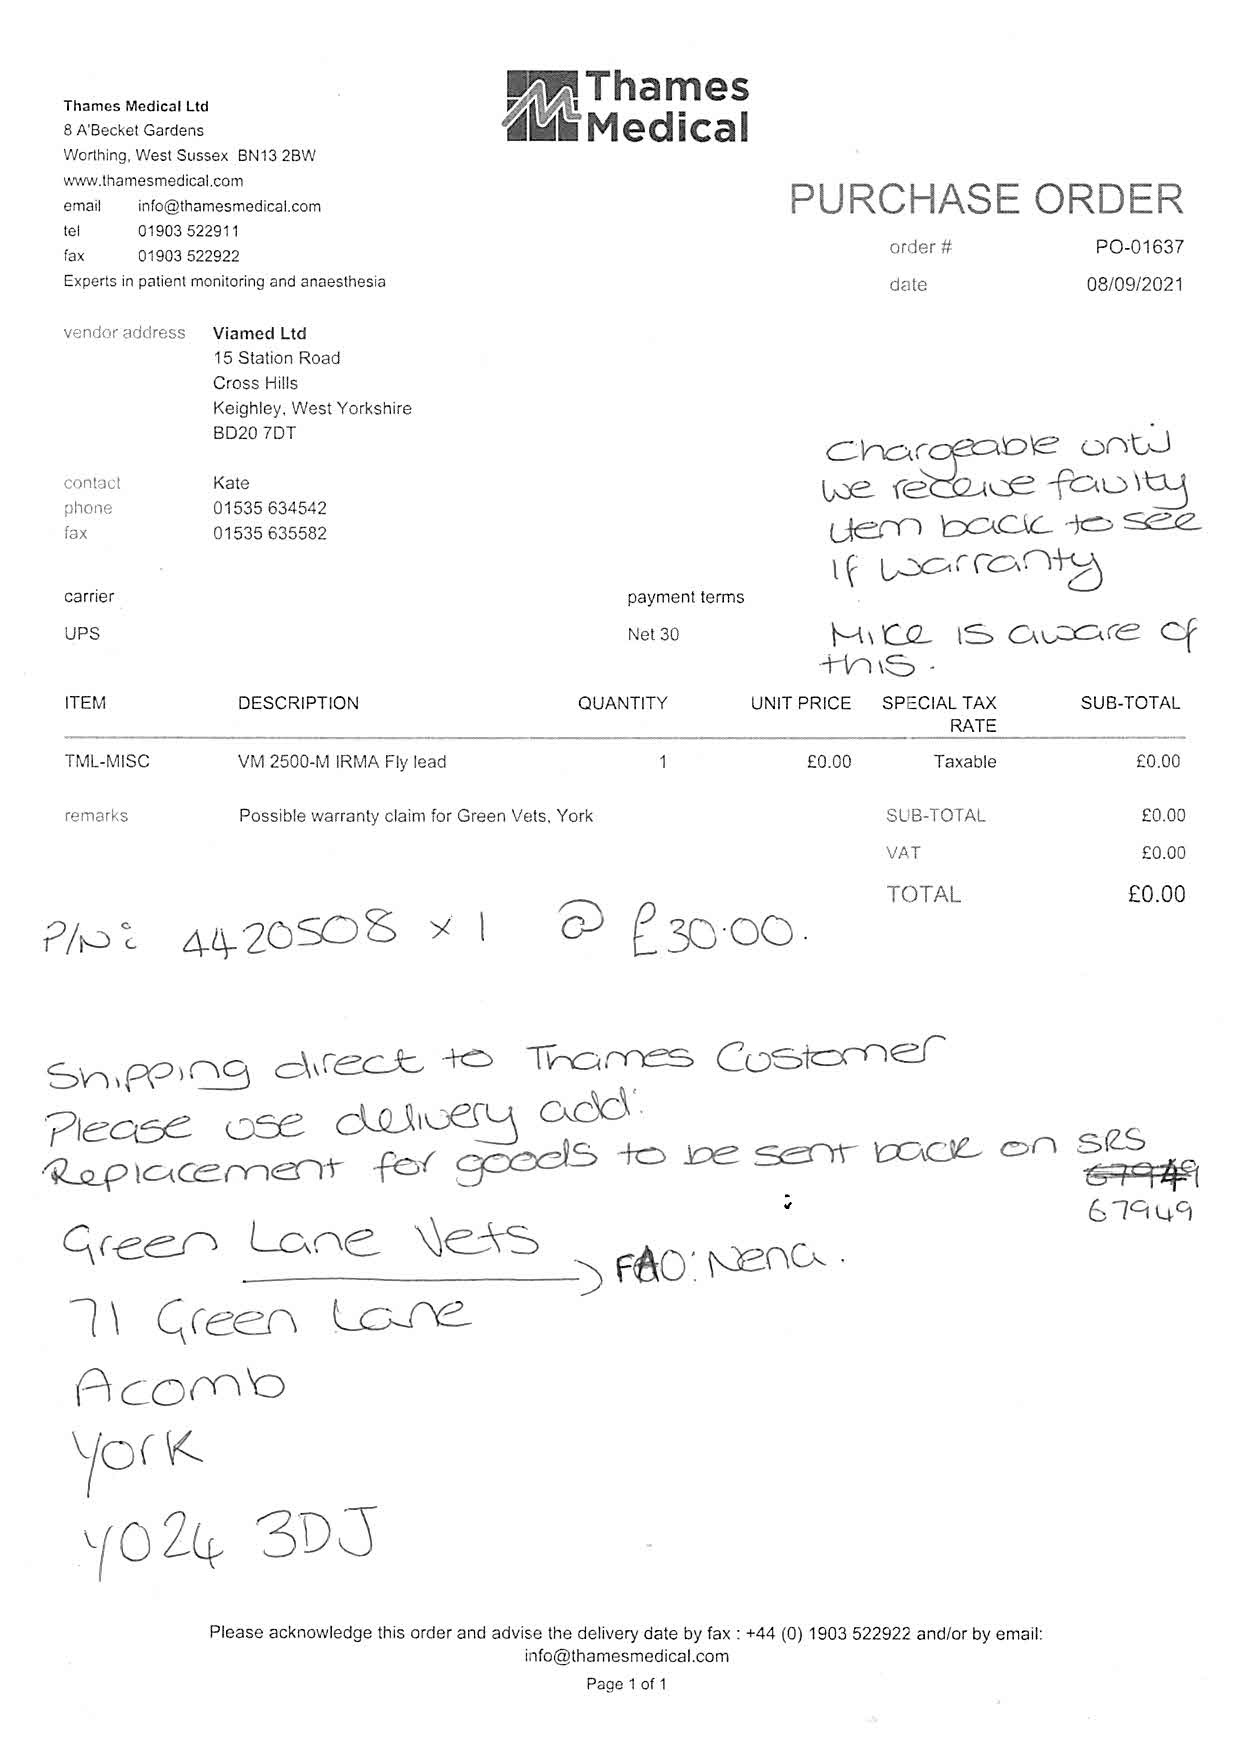 Thames
Medical
Thames Medical Ltd
8 A'Becket Gardens
Worthing, West Sussex BN13 2BW
www.thamesmedical.com
email info@thamesmedical.com
tel 01903 522911
fax 01903 522922
Experts in patient monitoring and anaesthesia
PURCHASE ORDER
order # PO-01637
date 08/09/2021
vendor address Viamed Ltd
15 Station Road
Cross Hills
Keighley, West Yorkshire
BD20 7DT
contact Kate
phone 01535 634542
fax 01535 635582
Chargeable until
we receive faulty
item back to see
if warranty
Mike is aware of
this.
carrier payment terms
UPS Net 30
ITEM DESCRIPTION QUANTITY UNIT PRICE SPECIAL TAX RATE SUB-TOTAL
TML-MISC VM 2500-M IRMA Fly lead 1 £0.00 Taxable £0.00
remarks Possible warranty claim for Green Vets, York SUB-TOTAL £0.00
VAT £0.00
TOTAL £0.00
P/N: 4420508 x 1 @ £30.00.
Shipping direct to Thames Customer
Please use delivery add:
Replacement for goods to be sent back on SRS
67949
67949
Green Lane Vets
FAO: Nena.
71 Green Lane
Acomb
York
YO24 3DJ
Please acknowledge this order and advise the delivery date by fax : +44 (0) 1903 522922 and/or by email:
info@thamesmedical.com
Page 1 of 1